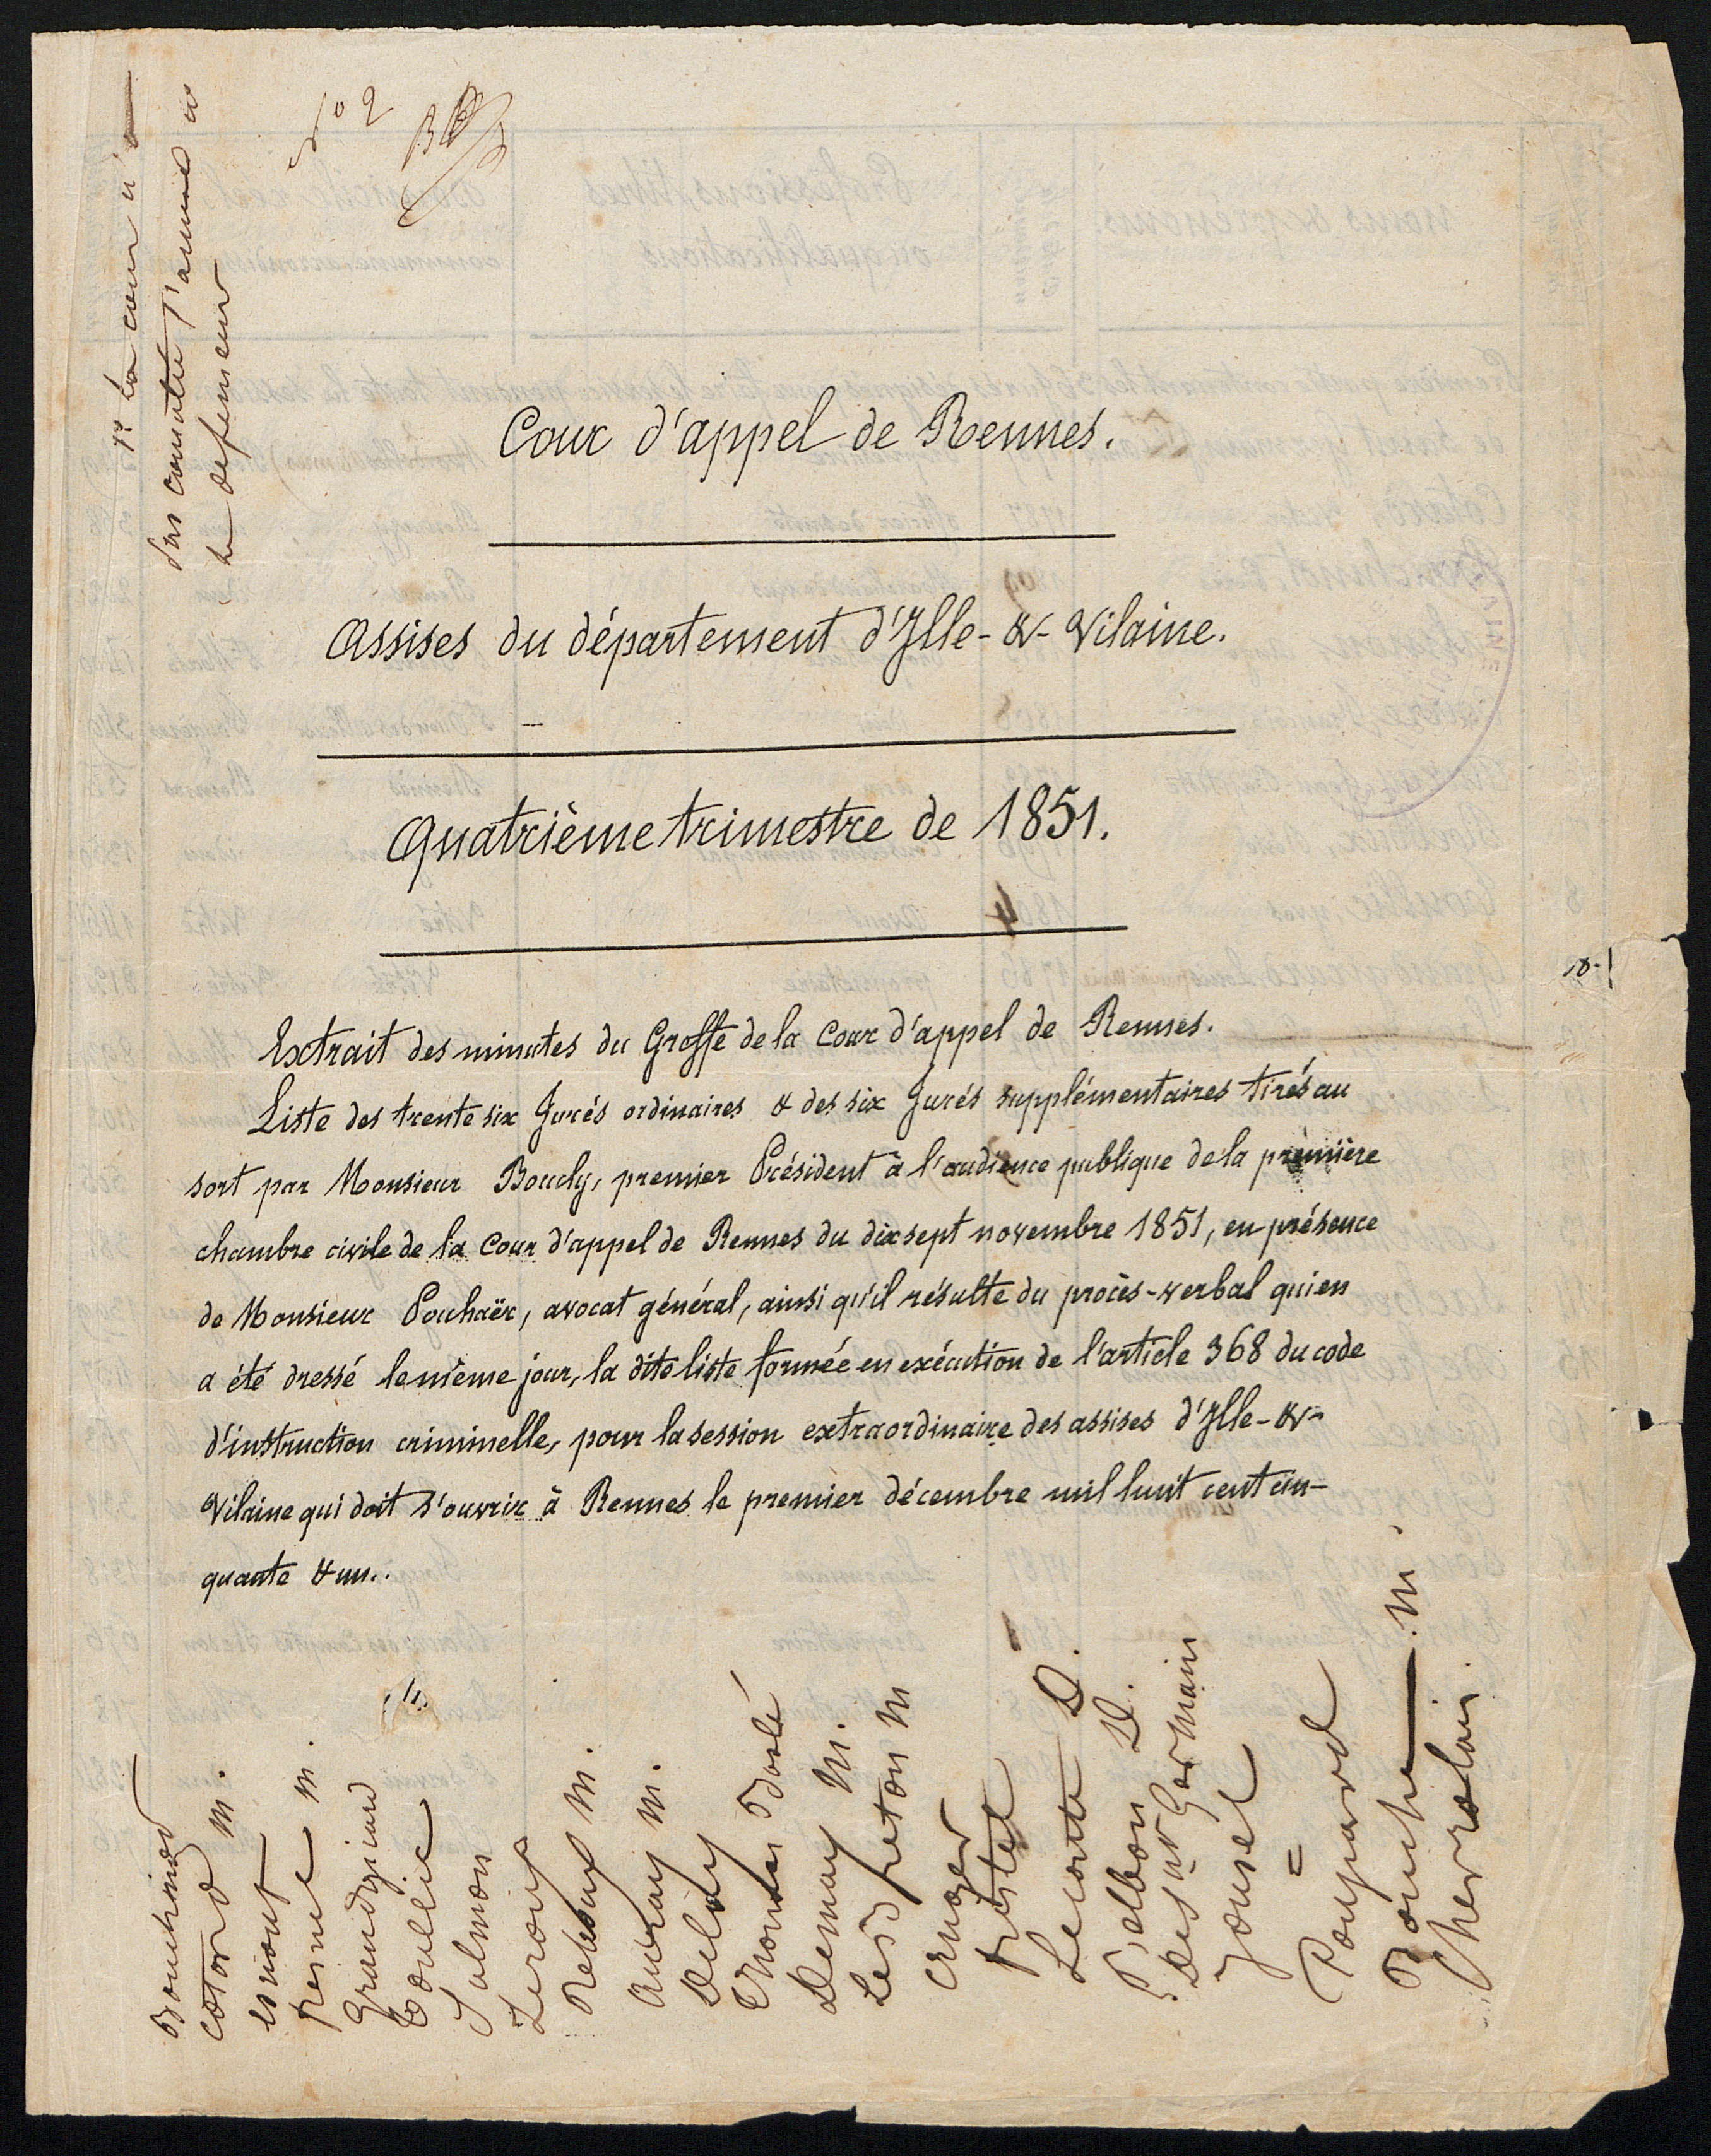 N° 2
le defenseur
Cour d'appel de Rennes.
Assises du département d'Ille-&-Vilaine.
Quatrième trimestre de 1851.
Extrait des minutes du Greffe de la Cour d'appel de Rennes.
Liste des trente six Jurés ordinaires & des six Jurés supplémentaires tirés au
sort par Monsieur Boucly, premier Président à l'audience publique de la première
chambre civile de la Cour d'appel de Rennes du dix sept novembre 1851, en présence
de Monsieur Pouhaër, avocat général, ainsi qu'il résulte du procès-verbal qui en
a été dressé le même jour, la dite liste formée en exécution de l'article 368 du code
d'instruction criminelle, pour la session extraordinaire des assises d'Ille-&-
Vilaine qui doit s'ouvrir à Rennes le premier décembre mil huit cent cin-
quante & un..
cotard m.
Grandguiard
Coullie
Salmon
Leroux
Reboux m.
Auvray m.
Delauy
Demay m.
Le Breton m
Cruzer
Lecomte D.
Belbon D.
De St Germain
Jousel
Poupard